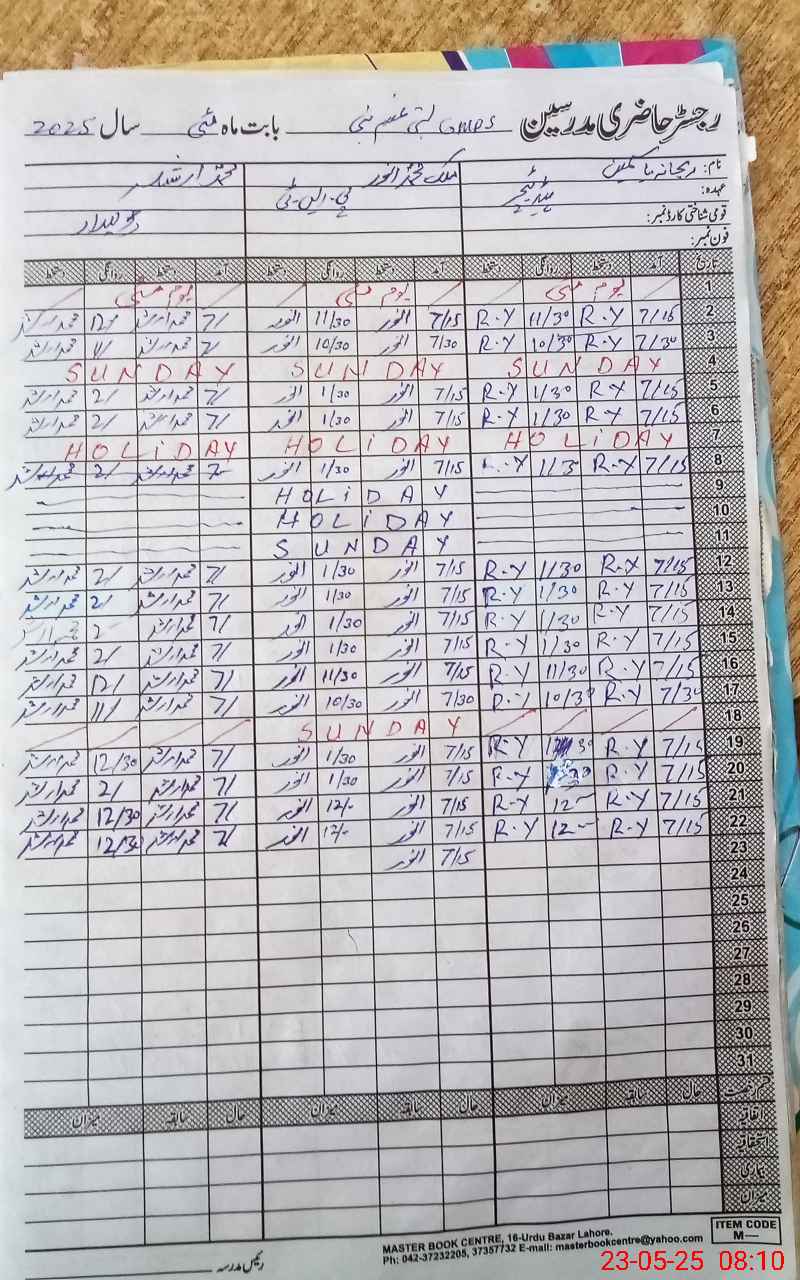 رجسٹر حاضری مدرسین GMPS بستی بابت ماہ مئی سال 2025
نام: ریحانہ یاسمین ملک محمد انور محمد ارشد
عہدہ: ہیڈ ٹیچر پی۔ایس۔ٹی
قومی شناختی کارڈ نمبر: چوکیدار
فون نمبر:
تاریخ آمد دستخط روانگی دستخط آمد دستخط روانگی دستخط آمد دستخط روانگی دستخط
1 یوم مئی یوم مئی یوم مئی
2 7/15 R.Y 11/30 R.Y 7/15 انور 11/30 انور 7/ محمد ارشد 12/ محمد ارشد
3 7/30 R.Y 10/30 R.Y 7/30 انور 10/30 انور 7/ محمد ارشد 11/ محمد ارشد
4 SUNDAY SUNDAY SUNDAY
5 7/15 R.Y 1/30 R.Y 7/15 انور 1/30 انور 7/ محمد ارشد 2/ محمد ارشد
6 7/15 R.Y 1/30 R.Y 7/15 انور 1/30 انور 7/ محمد ارشد 2/ محمد ارشد
7 HOLiDAY HOLiDAY HOLiDAY
8 7/15 R.Y 1/3 .Y 7/15 انور 1/30 انور 7/ محمد ارشد 2/ محمد ارشد
9 HOLiDAY
10 HOLiDAY
11 SUNDAY
12 7/15 R.Y 1/30 R.Y 7/15 انور 1/30 انور 7/ محمد ارشد 2/ محمد ارشد
13 7/15 R.Y 1/30 R.Y 7/15 انور 1/30 انور 7/ محمد ارشد 2/ محمد ارشد
14 7/15 R.Y 1/30 R.Y 7/15 انور 1/30 انور 7/ محمد ارشد 2 محمد ارشد
15 7/15 R.Y 1/30 R.Y 7/15 انور 1/30 انور 7/ محمد ارشد 2/ محمد ارشد
16 7/15 R.Y 11/30 R.Y 7/15 انور 11/30 انور 7/ محمد ارشد 12/ محمد ارشد
17 7/30 R.Y 10/30 R.Y 7/30 انور 10/30 انور 7/ محمد ارشد 11/ محمد ارشد
18 SUNDAY
19 7/15 R.Y 30 R-Y 7/15 انور 1/30 انور 7/ محمد ارشد 12/30 محمد ارشد
20 7/15 R.Y 30 R-Y 7/15 انور 1/30 انور 7/ محمد ارشد 2/ محمد ارشد
21 7/15 R-Y 12- R-Y 7/15 انور 12/- انور 7/ محمد ارشد 12/30 محمد ارشد
22 7/15 R-Y 12- R.Y 7/15 انور 12/- انور 7/ محمد ارشد 12/30 محمد ارشد
23 7/15 انور
24
25
26
27
28
29
30
31
قسم رخصت حال سابقہ میزان حال سابقہ میزان حال سابقہ میزان
اتفاقیہ
استحقاقیہ
بیماری
میزان
ITEM CODE
M—
MASTER BOOK CENTRE, 16-Urdu Bazar Lahore.
Ph: 042-37232205, 37357732 E-mail: masterbookcentre@yahoo.com
رئیس مدرسہ
23-05-25 08:10